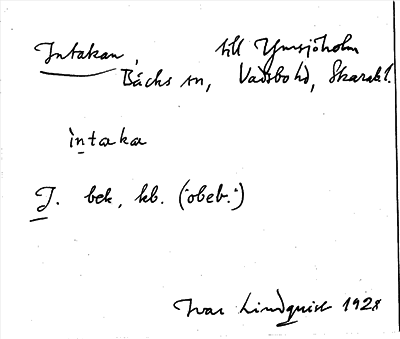 Intakan, till Ymsjöholm
Bäcks sn, Vadsbo hd, Skarab l.
ìntaka
I. bek, kb. (obeb.)
Ivar Lindquist 1928